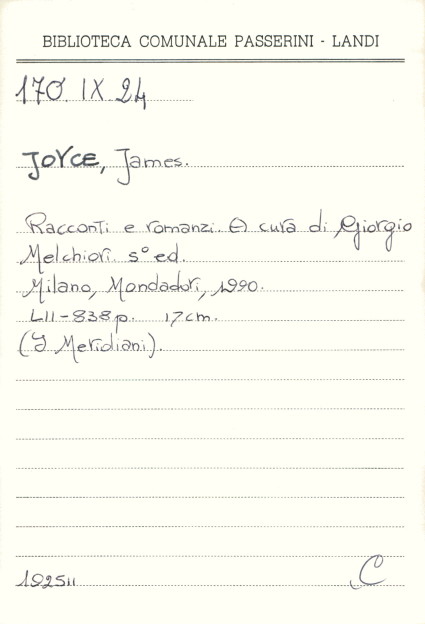 BIBLIOTECA COMUNALE PASSERINI - LANDI
170. IX. 24
JOYCE, James.
Racconti e romanzi. A cura di Giorgio
Melchiori. 5° ed.
Milano, Mondadori, 1990.
LII-838 p. 17 cm.
(I Meridiani).
192511
C